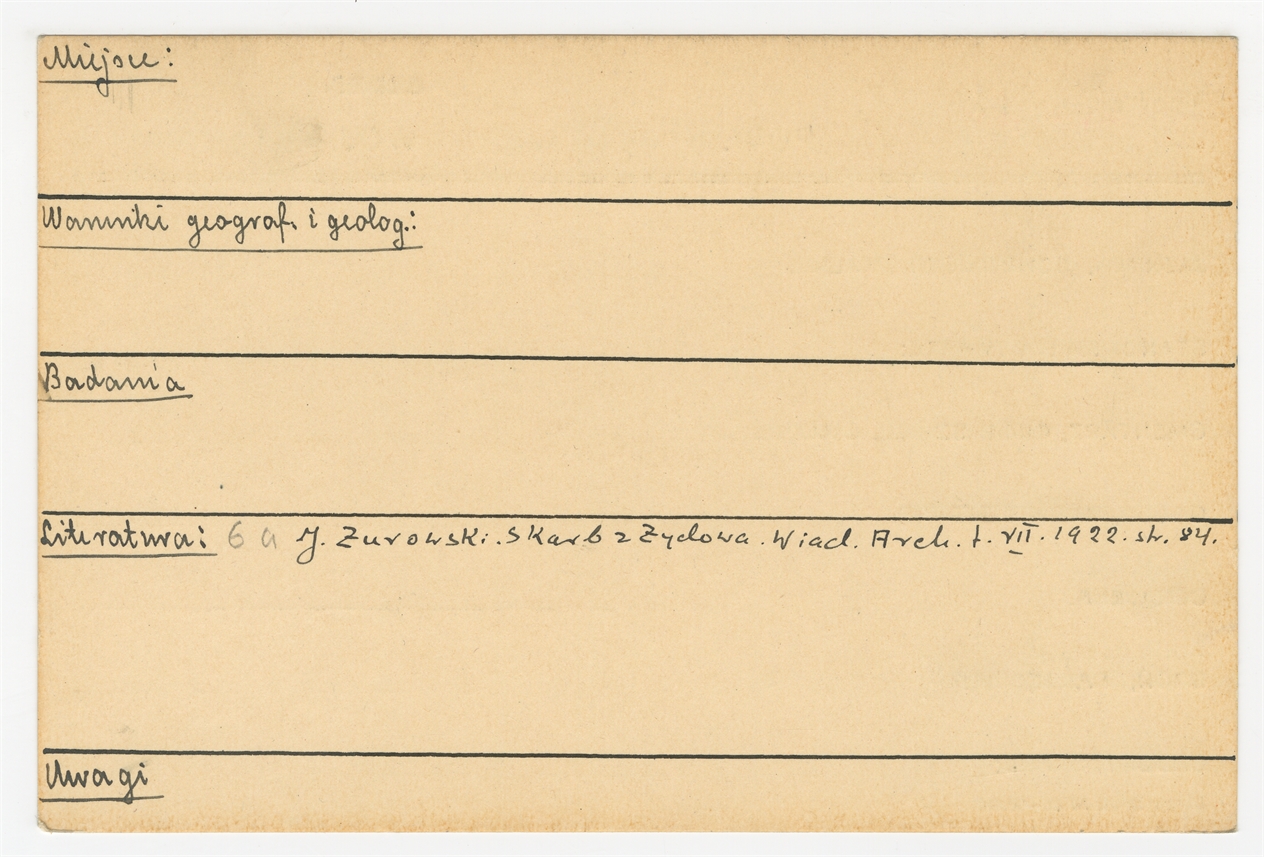 Miejsce:
Warunki geograf. i geolog.:
Badania
Literatura: 6a J. Żurowski. Skarb z Żydowa. Wiad. Arch. t. VII. 1922. str. 84.
Uwagi